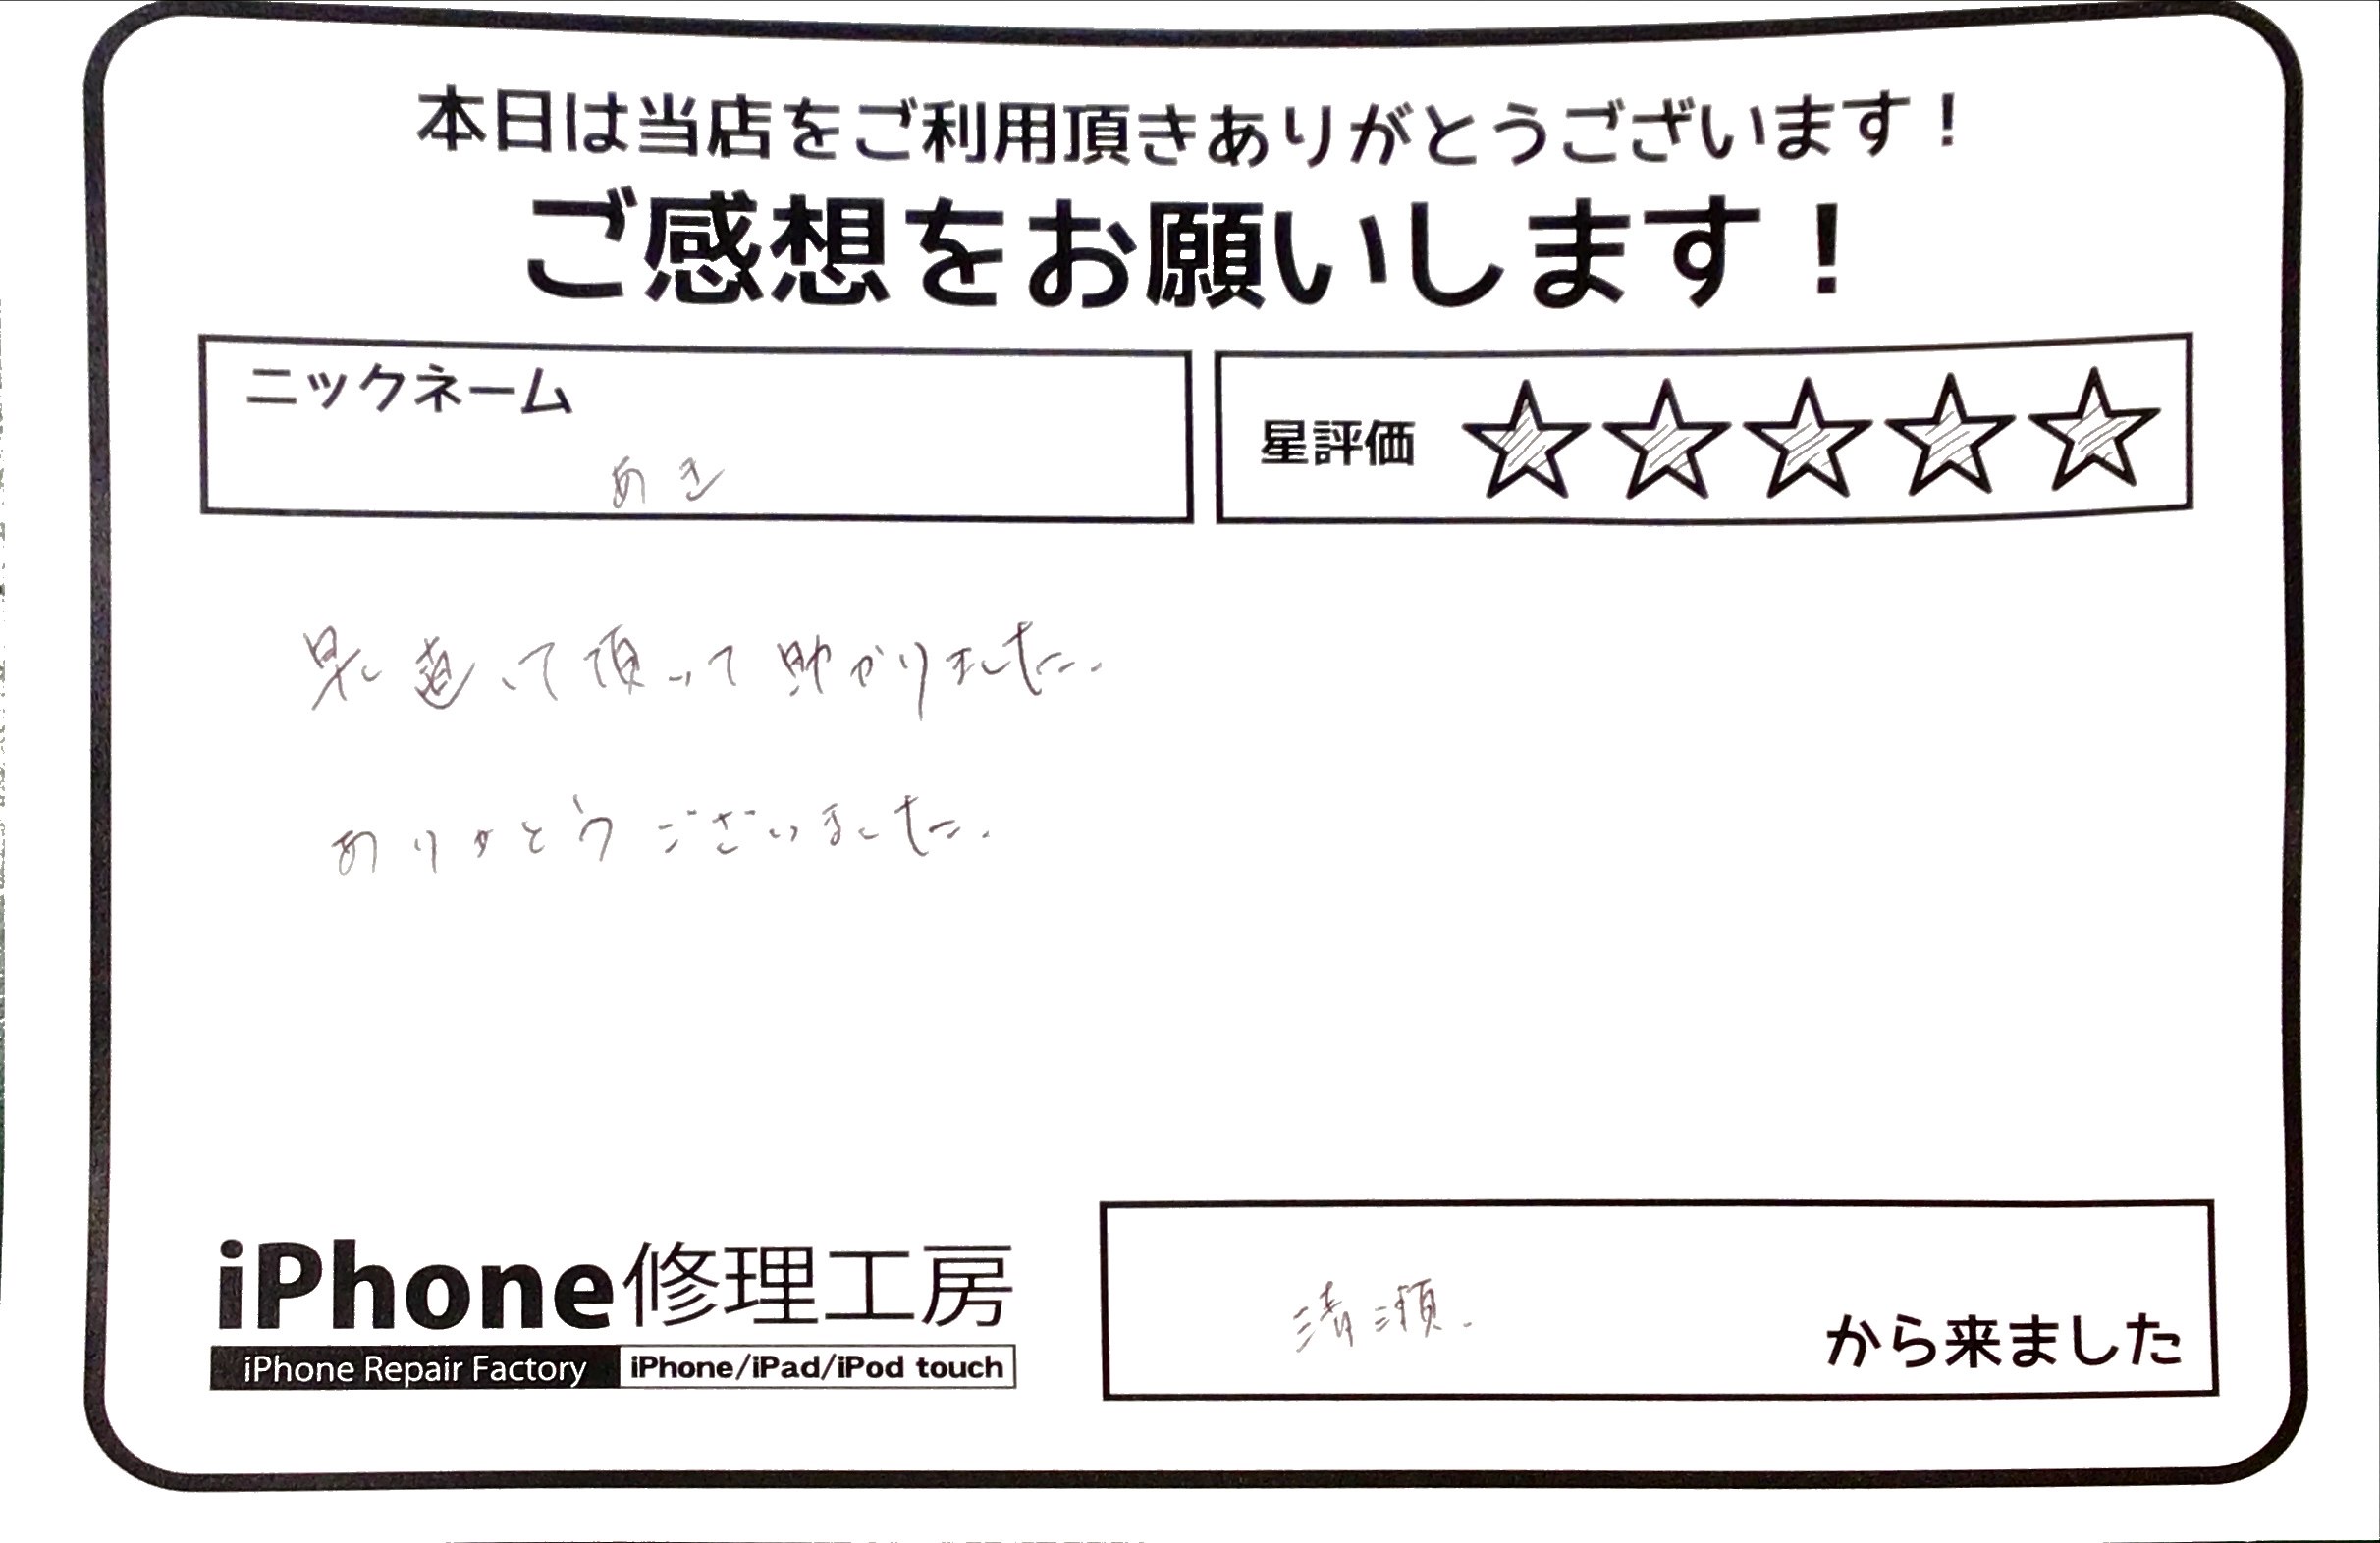 本日は当店をご利用頂きありがとうございます！
ご感想をお願いします！
ニックネーム
あき
星評価 ☆☆☆☆☆
早く直って頂って助かりました.
ありがとうございました.
iPhone修理工房
iPhone Repair Factory iPhone/iPad/iPod touch
清瀬. から来ました